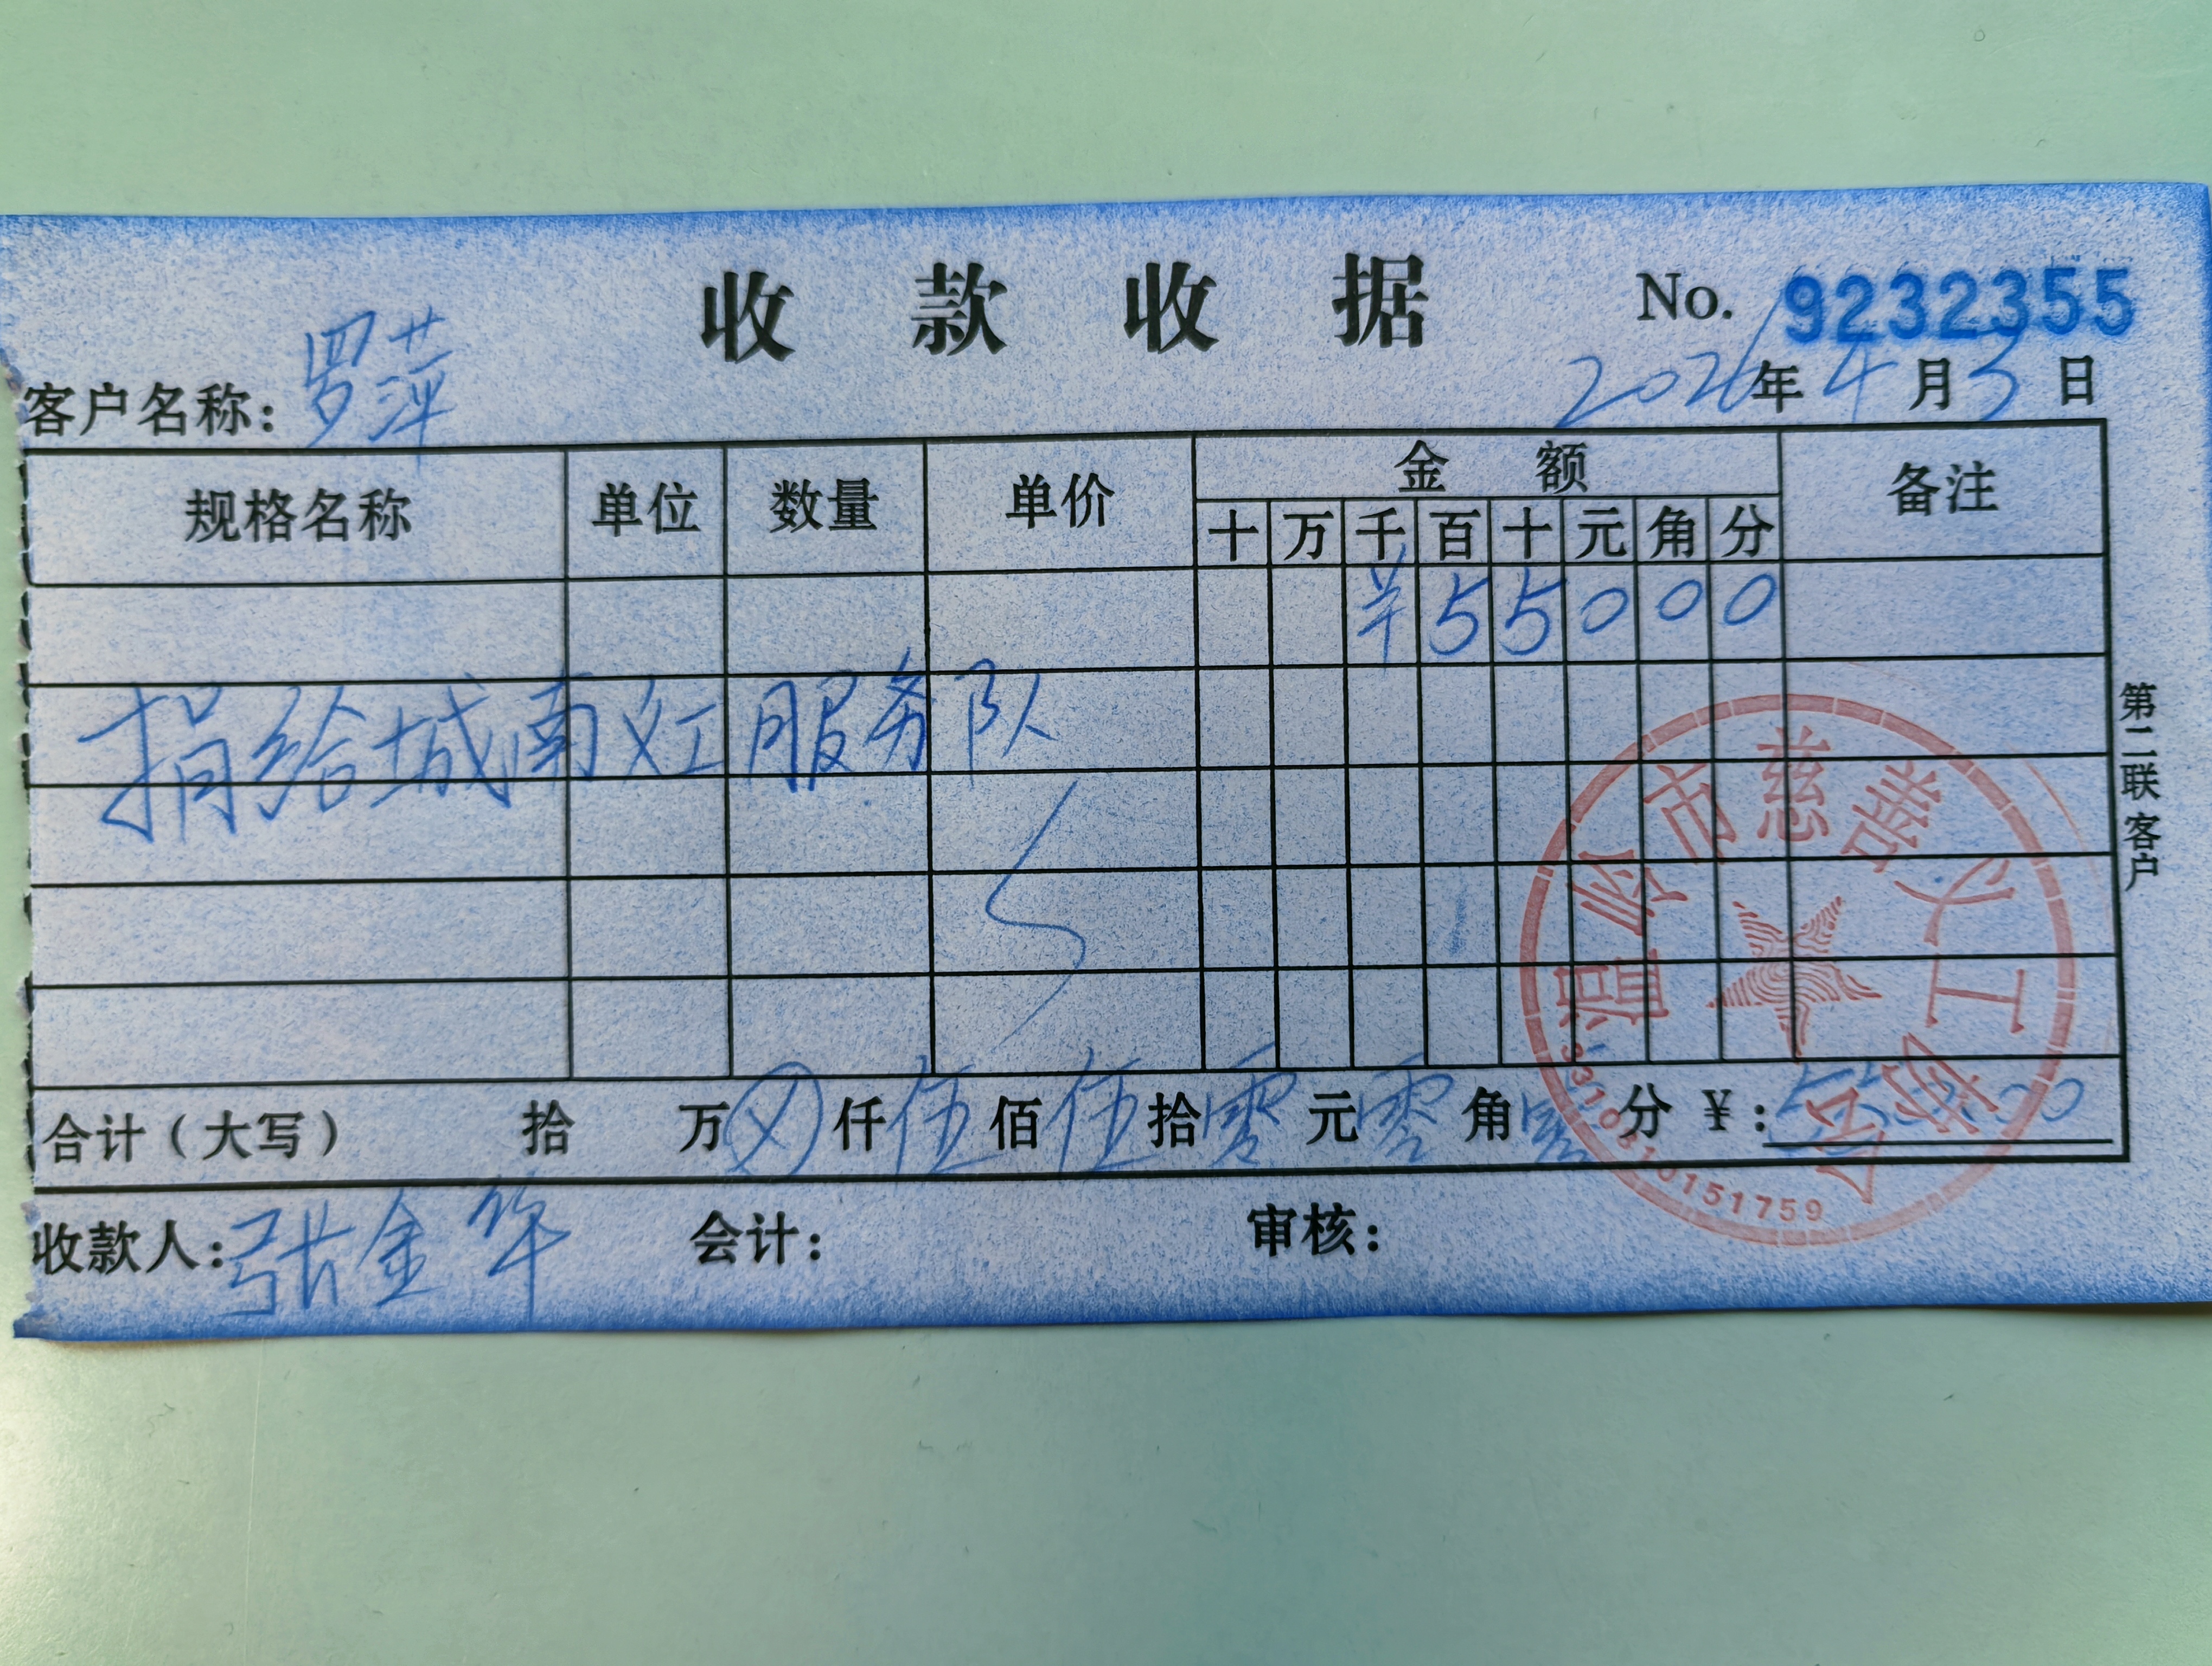 收款收据
No. 9232355
客户名称: 罗萍
2026年4月3日
规格名称 单位 数量 单价 金额 备注
十 万 千 百 十 元 角 分
¥ 5 5 0 0 0
捐给城南义工服务队
合计（大写） 拾 万 ⊗ 仟 伍 佰 伍 拾 零 元 零 角 零 分 ¥: 550.00
收款人: 张金华 会计: 审核:
第二联客户
温岭市慈善义工协会